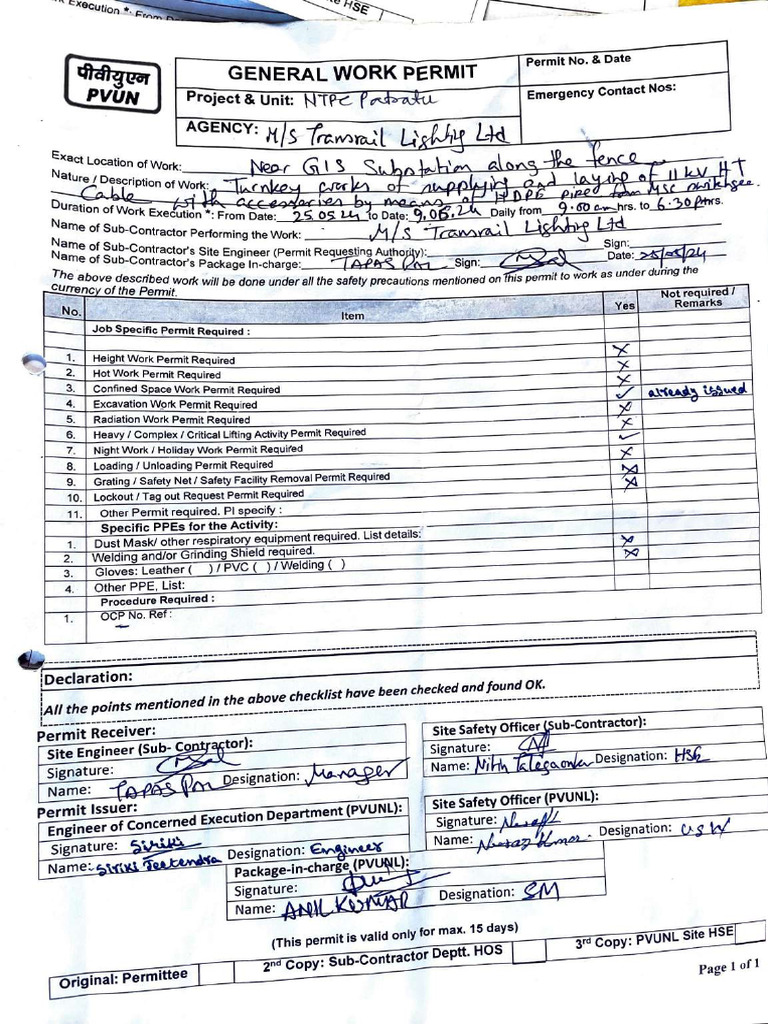 Execution *: From D
te HSE
पीवीयूएन
PVUN
GENERAL WORK PERMIT
Permit No. & Date
Project & Unit: NTPC Patratu
Emergency Contact Nos:
AGENCY: M/S Transrail Lighting Ltd
Exact Location of Work: Near GIS Substation along the fence
Nature / Description of Work: Turnkey works of supplying and laying of 11 kV HT
Cable with accessories by means of HDPE pipes from MSC switchgee.
Duration of Work Execution *: From Date: 25.05.24 to Date: 9.06.24 Daily from 9.00 am hrs. to 6.30 P hrs.
Name of Sub-Contractor Performing the Work: M/S Transrail Lighting Ltd
Name of Sub-Contractor's Site Engineer (Permit Requesting Authority): Sign:
Name of Sub-Contractor's Package In-charge: TAPAS PAL Sign: Date: 25/05/24
The above described work will be done under all the safety precautions mentioned on this permit to work as under during the
currency of the Permit.
No. Item Yes Not required / Remarks
Job Specific Permit Required :
1. Height Work Permit Required ×
2. Hot Work Permit Required ×
3. Confined Space Work Permit Required ×
4. Excavation Work Permit Required ✓ already issued
5. Radiation Work Permit Required ×
6. Heavy / Complex / Critical Lifting Activity Permit Required ×
7. Night Work / Holiday Work Permit Required ✓
8. Loading / Unloading Permit Required ×
9. Grating / Safety Net / Safety Facility Removal Permit Required ×
10. Lockout / Tag out Request Permit Required ×
11. Other Permit required. Pl specify :
Specific PPEs for the Activity:
1. Dust Mask/ other respiratory equipment required. List details: ×
2. Welding and/or Grinding Shield required. ×
3. Gloves: Leather ( ) / PVC ( ) / Welding ( )
4. Other PPE, List:
Procedure Required :
1. OCP No. Ref :
Declaration:
All the points mentioned in the above checklist have been checked and found OK.
Permit Receiver:
Site Engineer (Sub- Contractor):
Signature:
Name: TAPAS PAL Designation: Manager
Site Safety Officer (Sub-Contractor):
Signature:
Name: Nitin Talegaonka Designation: HSE
Permit Issuer:
Engineer of Concerned Execution Department (PVUNL):
Signature: Siriki
Name: Siriki Jeetendra Designation: Engineer
Site Safety Officer (PVUNL):
Signature:
Name: Neeraj Kumar Designation:
Package-in-charge (PVUNL):
Signature:
Name: ANIL KUMAR Designation: SM
(This permit is valid only for max. 15 days)
Original: Permittee
2nd Copy: Sub-Contractor Deptt. HOS
3rd Copy: PVUNL Site HSE
Page 1 of 1